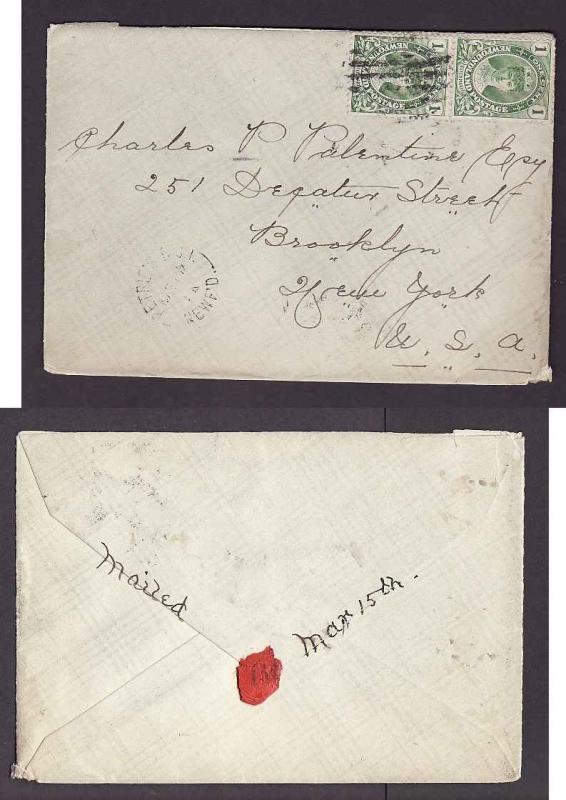 1 NEWFOUNDLAND 1
POSTAGE
1 NEWFOUNDLAND 1
POSTAGE
Charles P Palentine Esqy
251 Decatur Street
Brooklyn
New York
U. S. A.
NEWF'D.
Mailed
Mar 15th.